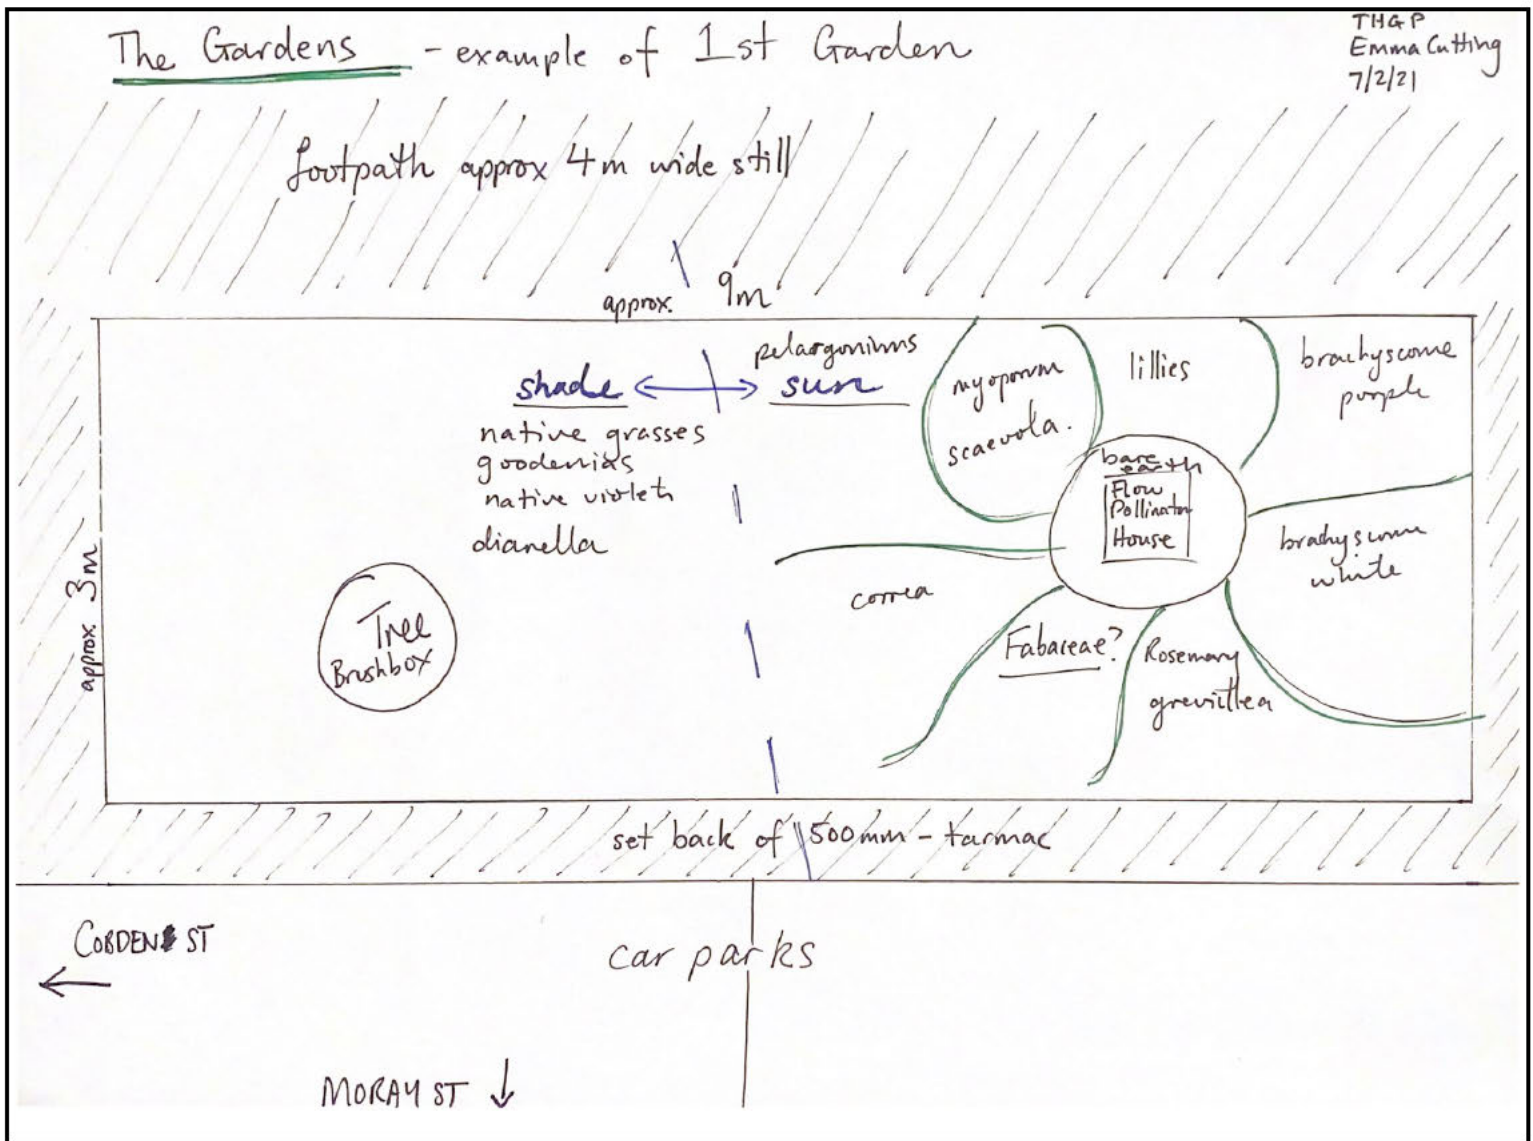 The Gardens - example of 1st Garden
THGP
Emma Cutting
7/2/21
footpath approx 4m wide still
approx. 9m
approx. 3m
shade
native grasses
goodenias
native violets
dianella
Tree
Brushbox
pelargoniums
sun
myoporum
scaevola.
lillies
brachyscome
purple
bare
earth
Flow
Pollinator
House
brachyscome
white
correa
Fabaceae?
Rosemary
grevillea
set back of 500mm - tarmac
COBDEN ST
car parks
MORAY ST